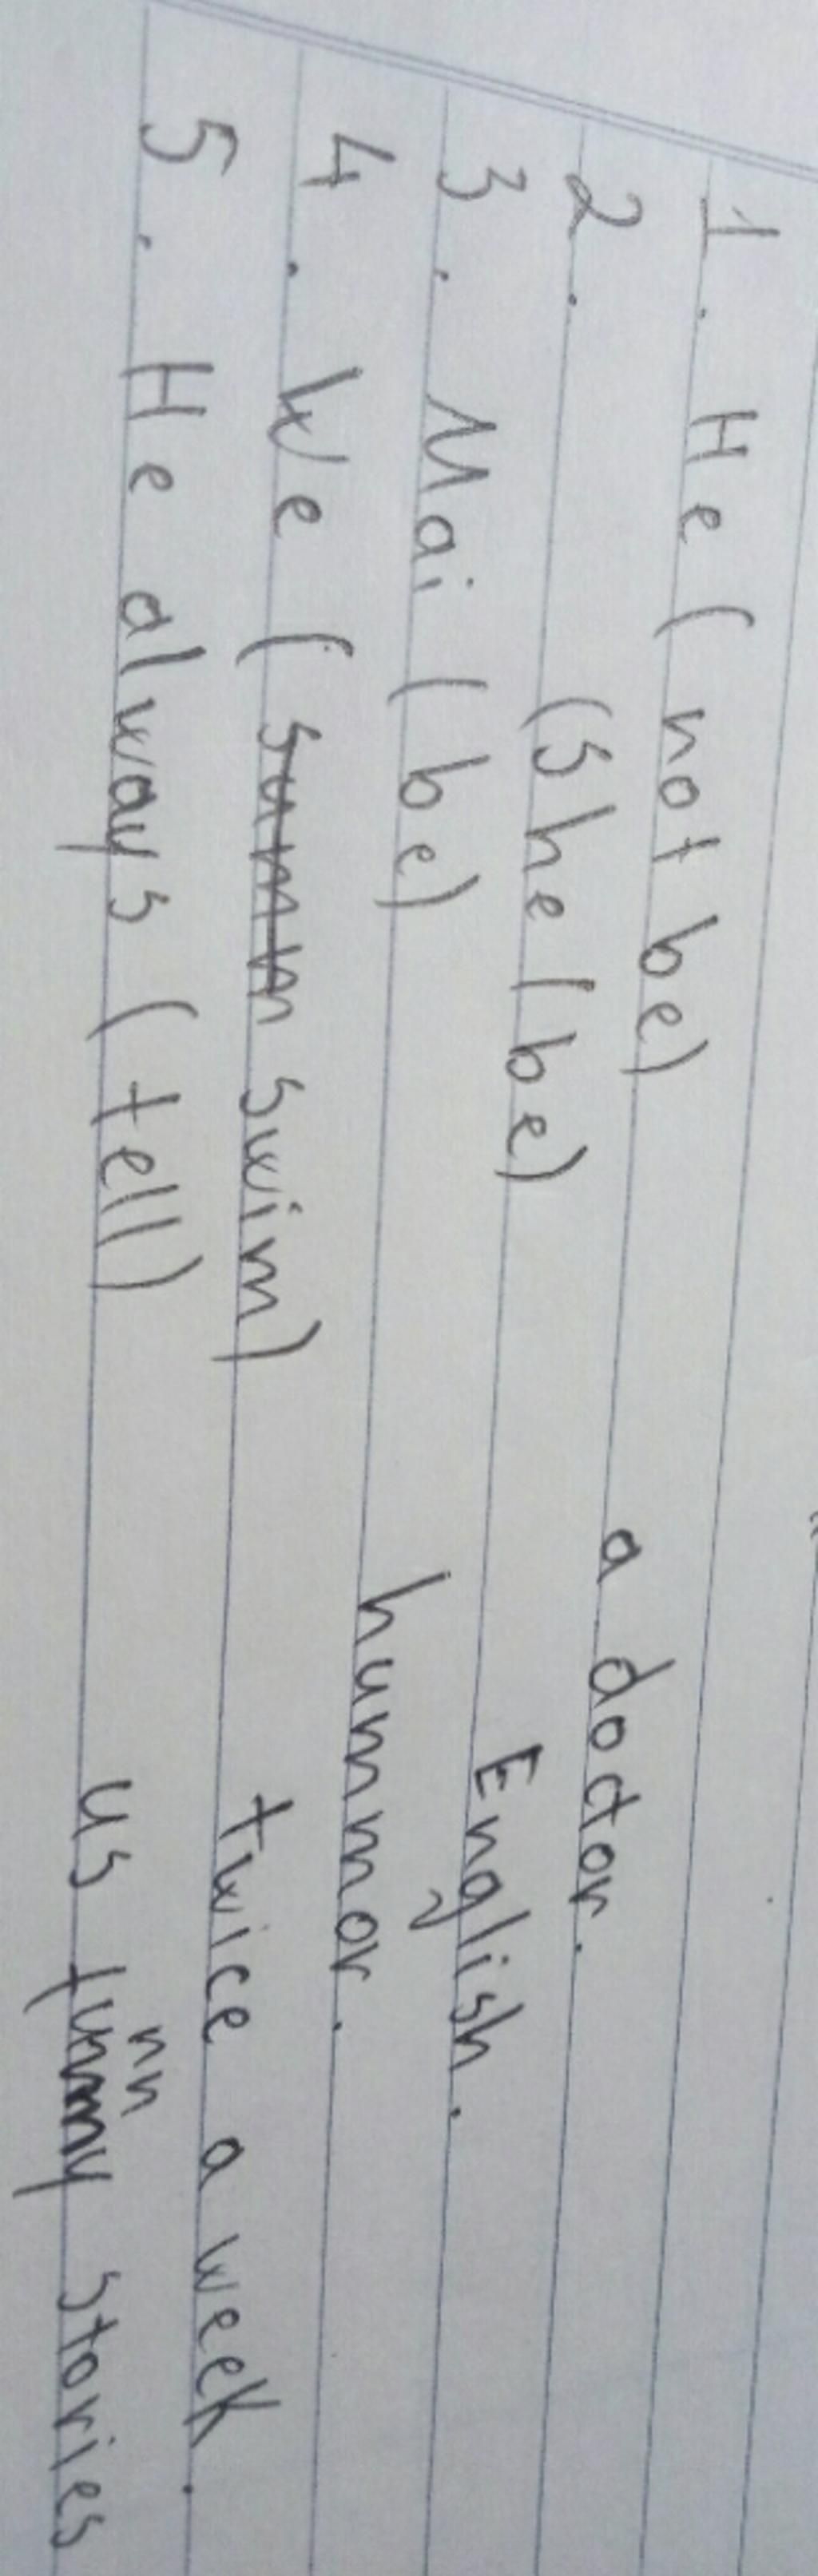 1. He (not be) a doctor.
2. (She (be) English.
3. Mai (be) hummor.
4. We (swim) twice a week.
5. He always (tell) us funny stories